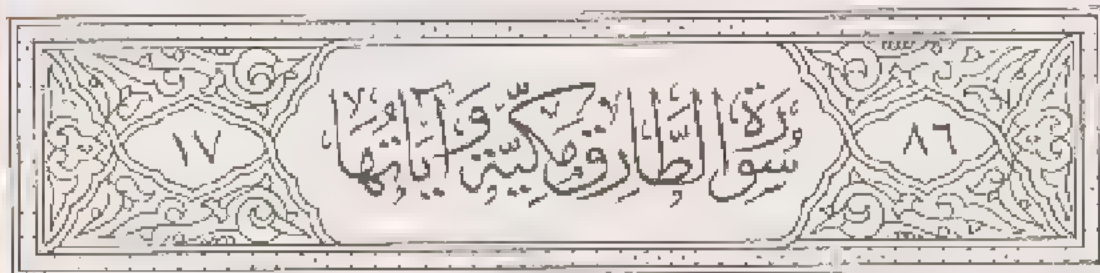 ٨٦ سُورَةُ الطَّارِقِ مَكِّيَّةٌ وَآيَاتُهَا ١٧